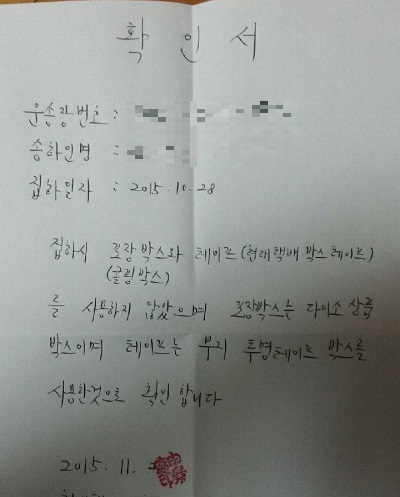 확인서
운송장번호 :
송하인명 :
집하일자 : 2015.10.28
집하시 포장박스와 테이프(현대택배 박스테이프)
(골림박스)
를 사용하지 않았으며 포장박스는 다이소 상품
박스이며 테이프는 무지 투명테이프 박스를
사용한것으로 확인합니다
2015. 11.